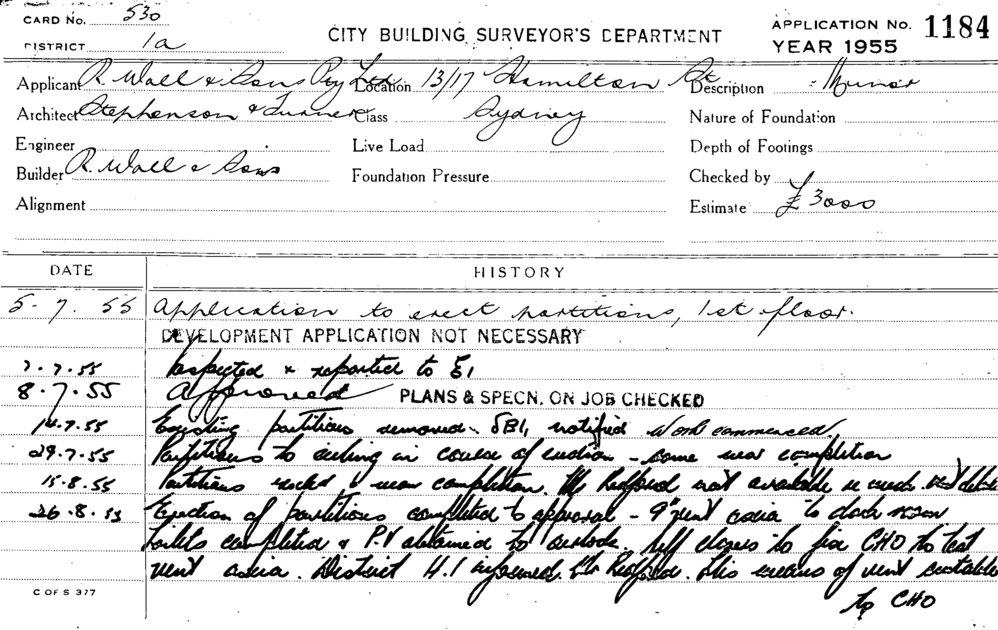 CARD No. 530
DISTRICT 1a
CITY BUILDING SURVEYOR'S DEPARTMENT
APPLICATION No. 1184
YEAR 1955
Applicant R. Wall & Sons Pty Ltd Location 13/17 Hamilton St Description Minor
Architect Stephenson & Turner Class Sydney Nature of Foundation
Engineer Live Load Depth of Footings
Builder R. Wall & Sons Foundation Pressure Checked by
Alignment Estimate £3000
DATE HISTORY
5.7.55 Application to erect partitions, 1st floor.
DEVELOPMENT APPLICATION NOT NECESSARY
7.7.55 Inspected & reported to E1
8.7.55 Approved PLANS & SPECN. ON JOB CHECKED
14.7.55 Existing partitions removed. DBI, notified Work commenced
29.7.55 Partitions to ceiling in course of erection - some near completion
15.8.55 Partitions erected & near completion. Mr Redford not available
26.8.55 Erection of partitions completed to approval - 9" vent to dark room
toilets completed & P.V obtained to CHO to test
vent District H.I informed. Mr Redford. This means of vent suitable
to CHO
C OF S 377